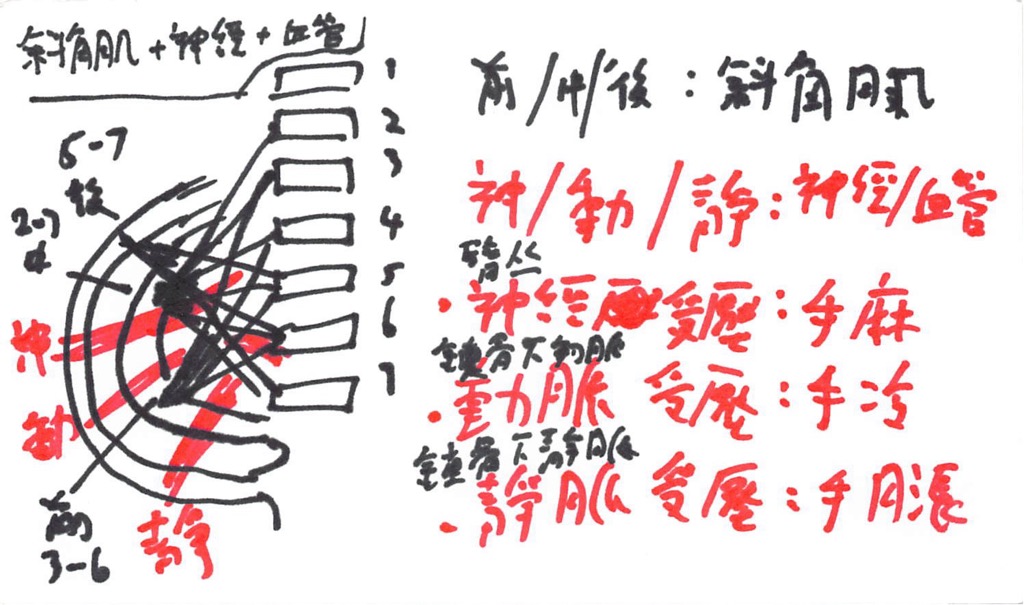 斜角肌+神經+血管
1
2
3
4
5
6
7
5-7
後
2-7
中
神
動
前
3-6
靜
前/中/後:斜角肌
神/動/靜:神經/血管
臂丛
·神經受壓:手麻
鎖骨下動脈
·動脈 受壓:手冷
鎖骨下靜脈
·靜脈 受壓:手脹